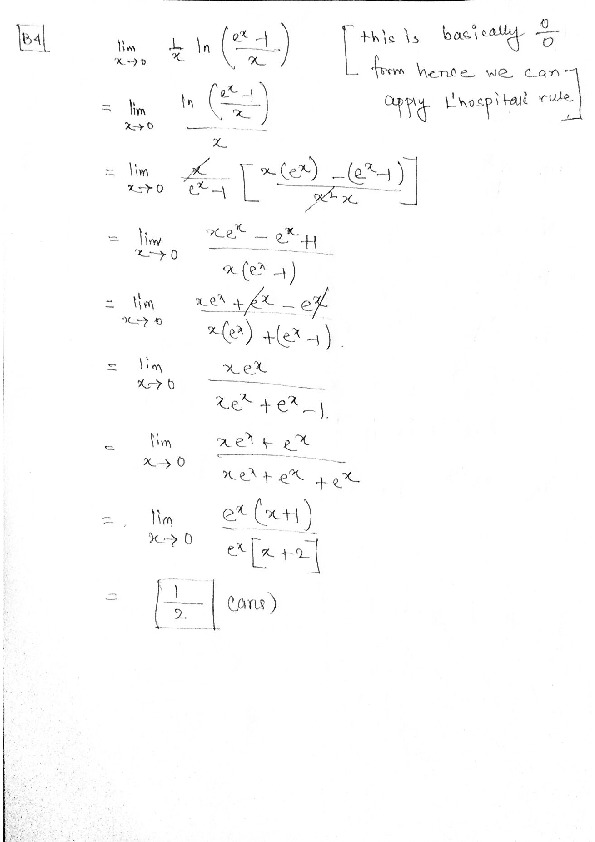 B4
lim x→0 1/x ln ((e^x -1)/x) [this is basically 0/0
form hence we can
apply L'hospitals rule]
= lim x→0 ln ((e^x -1)/x) / x
= lim x→0 x/(e^x -1) [(x(e^x) - (e^x -1))/(x^2 x)]
= lim x→0 (xe^x - e^x +1)/(x(e^x -1))
= lim x→0 (xe^x + e^x - e^x)/(x(e^x) + (e^x -1)).
= lim x→0 xe^x/(xe^x + e^x -1).
= lim x→0 (xe^x + e^x)/(xe^x + e^x + e^x)
= lim x→0 e^x (x+1)/(e^x [x+2])
= 1/2 (ans)